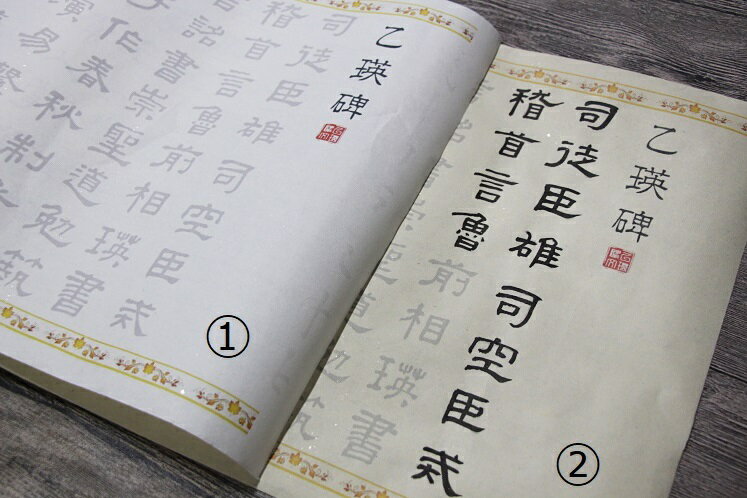 乙瑛碑
司徒臣雄司空臣戒
稽首言魯前相瑛書
言詔書崇聖道勉
子作春秋制
演易
①
乙瑛碑
司徒臣雄司空臣戒
稽首言魯前相瑛書
詔書崇聖道勉
②